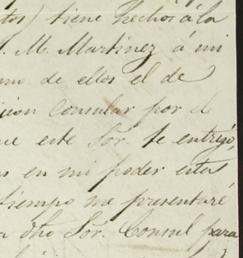 tos) tiene hechos á la
. M. Martinez á mi
uno de ellos el de
icion Consular por el
ue este Sor. te entregó,
s en mi poder estos
tiempo me presentaré
a dho Sor. Consul para